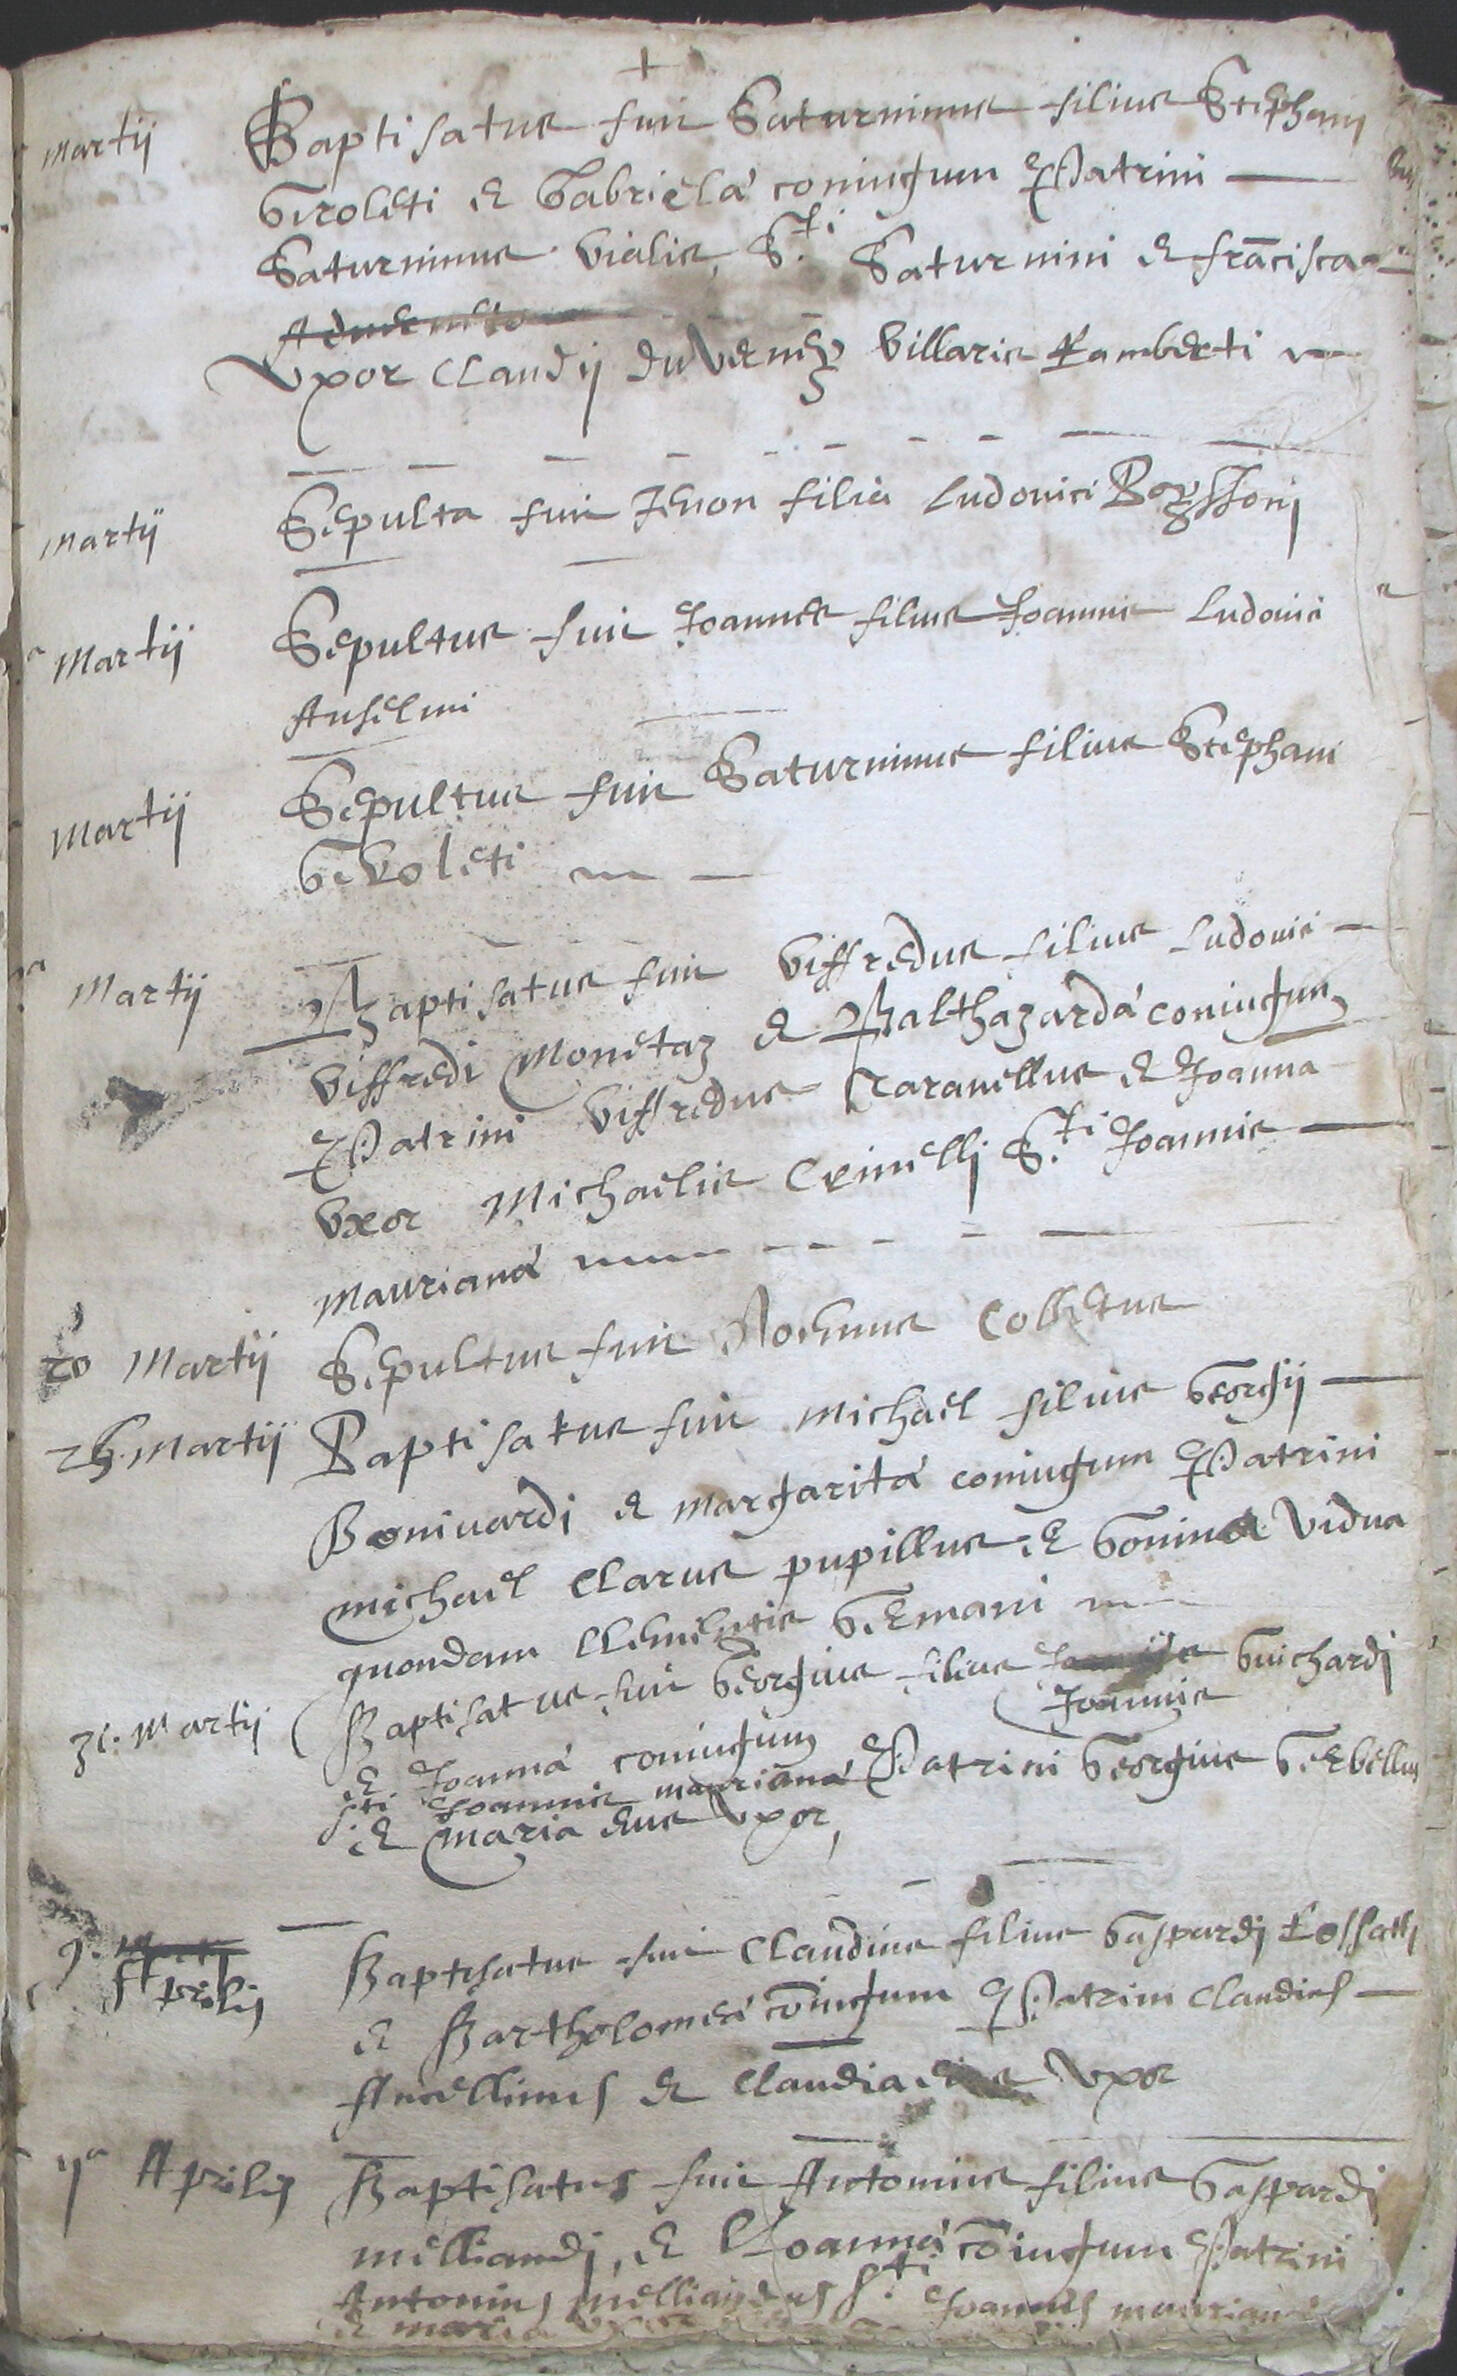 +
Martij Baptisatus fuit Saturninus filius Stephani
Geroleti et Gabriela coniugum Patrini
Saturninus Vialis, S.ti Saturnini et frācisca
Uxor Claudij du Verney Villaris Ramberti
Martij Sepulta fuit Jenon filia Ludovici Boyssonj
Martij Sepultus fuit Joannes filius Joannis Ludovici
Anselmi
Martij Sepultus fuit Saturninus filius Stephani
Geroleti
Martij Baptisatus fuit Viffredus filius Ludovici
Viffredi Monetaz et Balthazarda coniugum
Patrini Viffredus Taravellus et Joanna
Uxor Michaelis Crinelli S.ti Joannis
Mauriana
20 Martij Sepultus fuit Colletus
25. Martij Baptisatus fuit Michael filius Georgij
Bonivardi et Margarita coniugum Patrini
Michael Clarus pupillus et Vidua
quondam Clementis Germani
31. Martij Baptisatus fuit Georgius filius Guichardi
Joannis
et Joanna coniugum
S.ti Joannis mauriana Patrini Georgius Gerbellus
et Maria eius Uxor,
9. Aprilis Baptisatus fuit Claudius filius Gaspardi Rossatti
et Bartholomea cōiugum Patrini Claudius
Ancellinus et Claudia eius Uxor
Aprilis Baptisatus fuit Antonius filius Gaspardi
Melliandj, et Joanna cōiugum Patrini
Antonius Melliandus S.ti Joannis mauriana
et maria